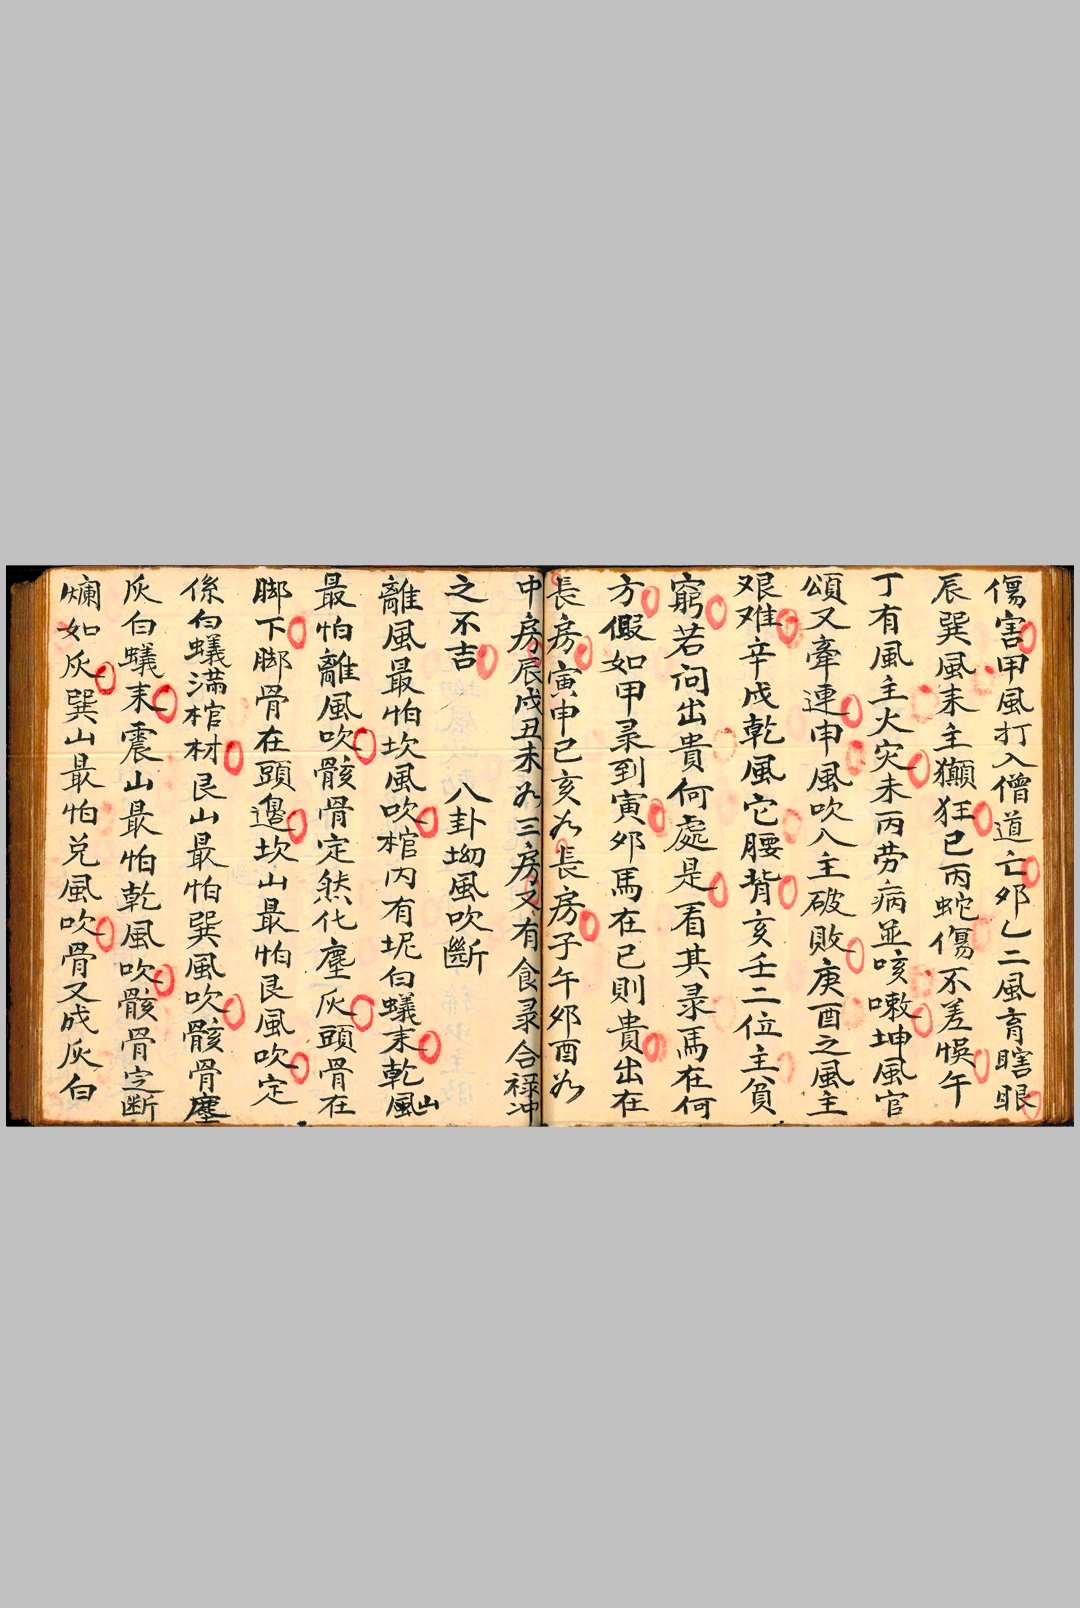 傷害甲風打入僧道亡夘乙二風育瞎眼
辰巽風来主癲狂巳丙蛇傷不差悞午
丁有風主火灾未丙劳病並咳嗽坤風官
頌又牽連申風吹入主破敗庚酉之風主
艰难辛戌乾風它腰背亥壬二位主貧
窮若问出貴何處是看其录馬在何
方假如甲录到寅夘馬在已則貴出在
長房寅申巳亥为長房子午夘酉为
中房辰戌丑未为三房又有食录合禄冲
之不吉
八卦坳風吹斷
離風最怕坎風吹棺内有坭白蟻来乾風山
最怕離風吹骸骨定然化塵灰頭骨在
脚下脚骨在頭邉坎山最怕艮風吹定
係白蟻满棺材艮山最怕巽風吹骸骨塵
灰白蟻来震山最怕乾風吹骸骨定断
爛如灰巽山最怕兑風吹骨又成灰白